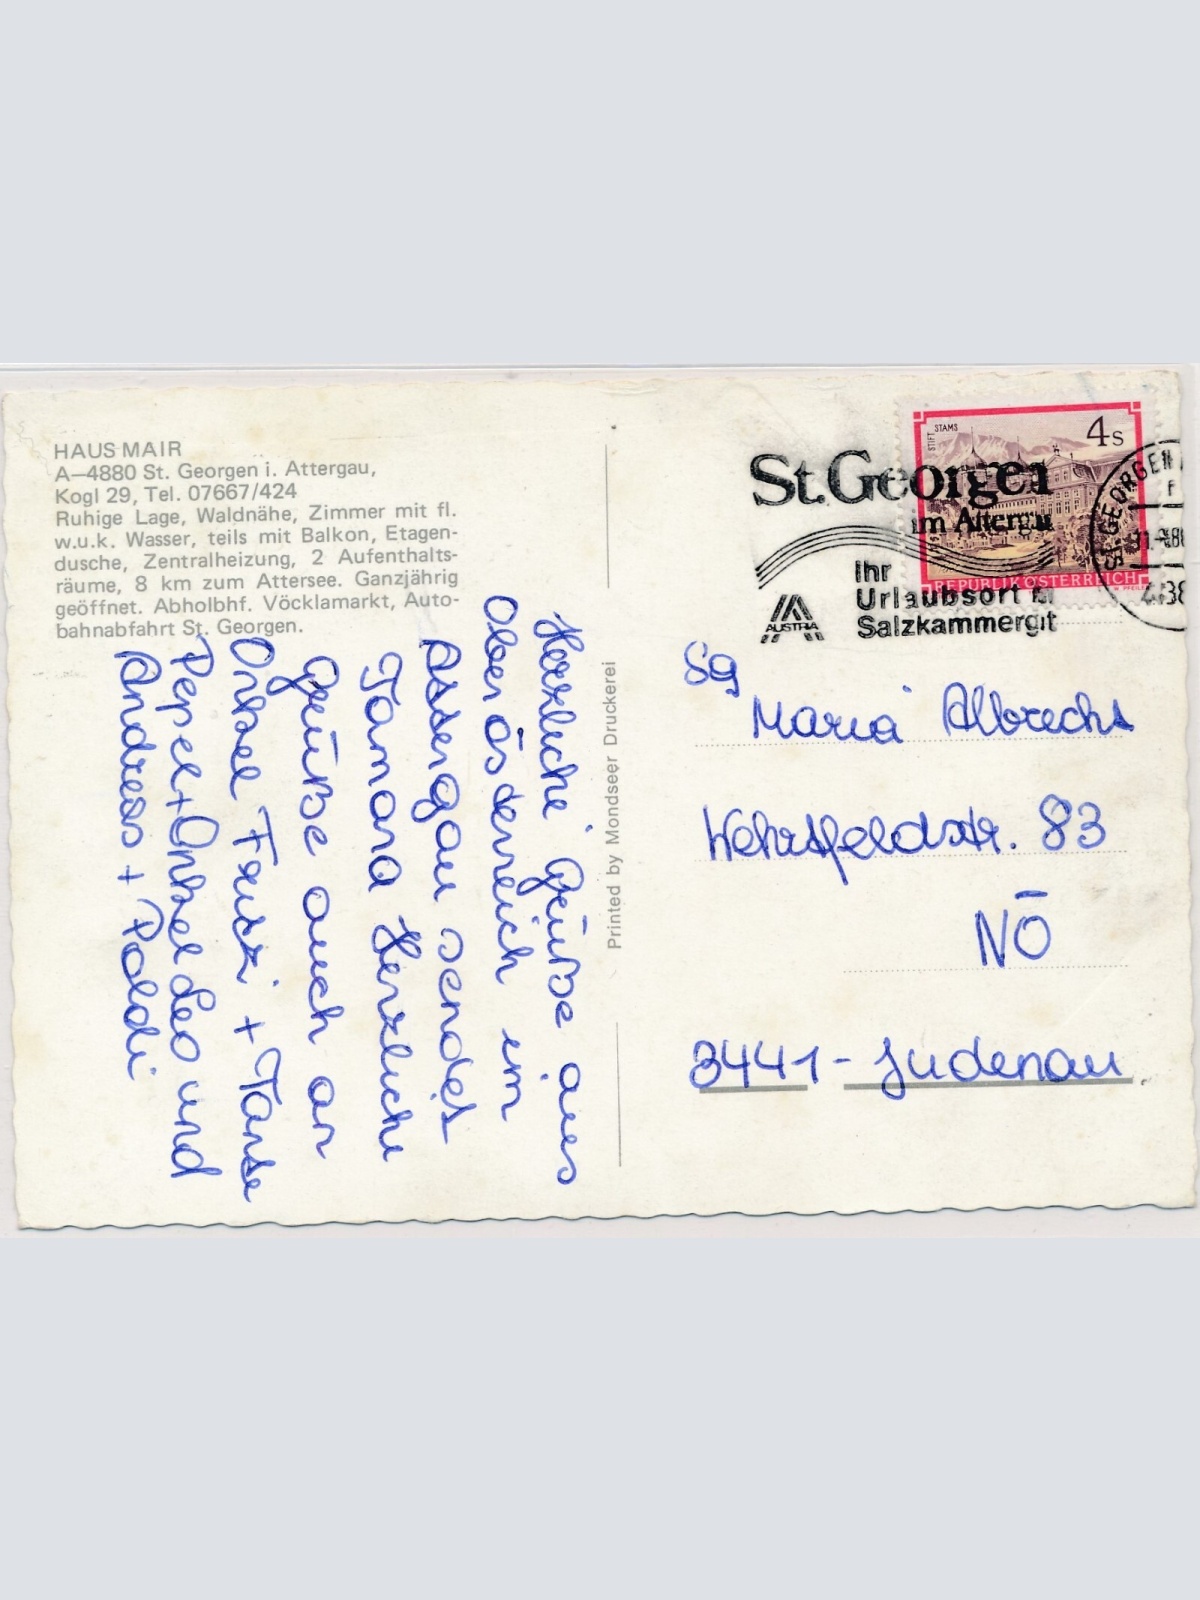 HAUS MAIR
A—4880 St. Georgen i. Attergau,
Kogl 29, Tel. 07667/424
Ruhige Lage, Waldnähe, Zimmer mit fl.
w.u.k. Wasser, teils mit Balkon, Etagen-
dusche, Zentralheizung, 2 Aufenthalts-
räume, 8 km zum Attersee. Ganzjährig
geöffnet. Abholbhf. Vöcklamarkt, Auto-
bahnabfahrt St. Georgen.
Herzliche Grüße aus
Oberösterreich im
Attergau sendet
Tamara Herzliche
Grüße auch an
Onkel Fritzi + Tante
Pepel + Onkel Leo und
Andreas + Poldi
Printed by Mondseer Druckerei
St. Georgen
im Attergau
Ihr
Urlaubsort
Salzkammergut
AUSTRIA
STIFT STAMS
4s
REPUBLIK ÖSTERREICH
ST. GEORGEN
Sg
Maria Albrecht
83
NÖ
3441 - Judenau